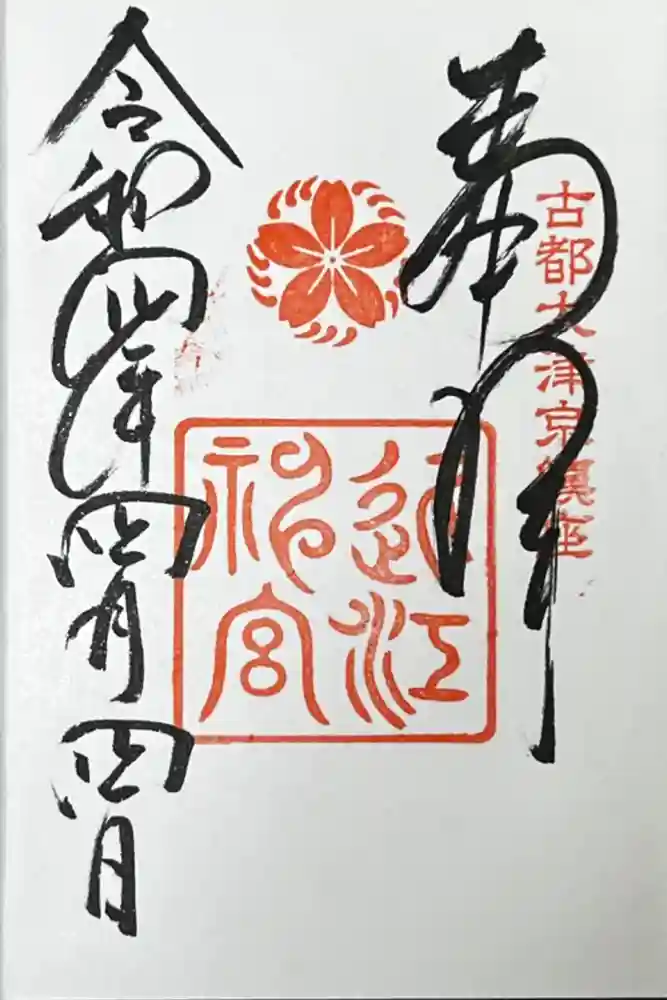 奉拝
古都大津京鎮座
近江
神宮
令和四年四月四日